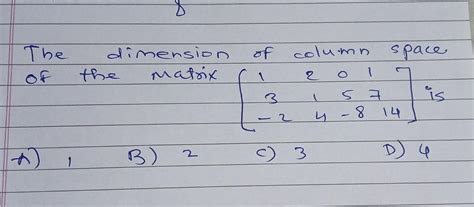 The dimension of column space
of the Matrix [ 1 2 0 1
3 1 5 7 ] is
-2 4 -8 14
A) 1 B) 2 C) 3 D) 4